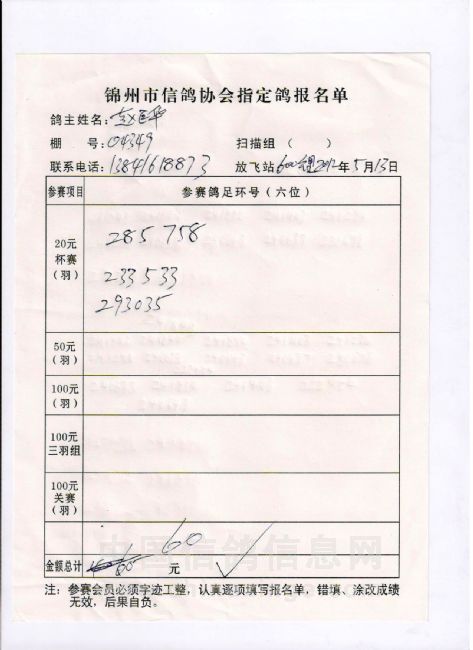 锦州市信鸽协会指定鸽报名单
鸽主姓名：赵巨华
棚 号：04349 扫描组（ ）
联系电话：13841618873 放飞站 600 2012年5月13日
参赛项目 参赛鸽足环号（六位）
20元
杯赛
（羽）
285758
233533
293035
50元
（羽）
100元
（羽）
100元
三羽组
100元
关赛
（羽）
60
金额总计 60 元
注：参赛会员必须字迹工整，认真逐项填写报名单，错填、涂改成绩
无效，后果自负。
中国信鸽信息网